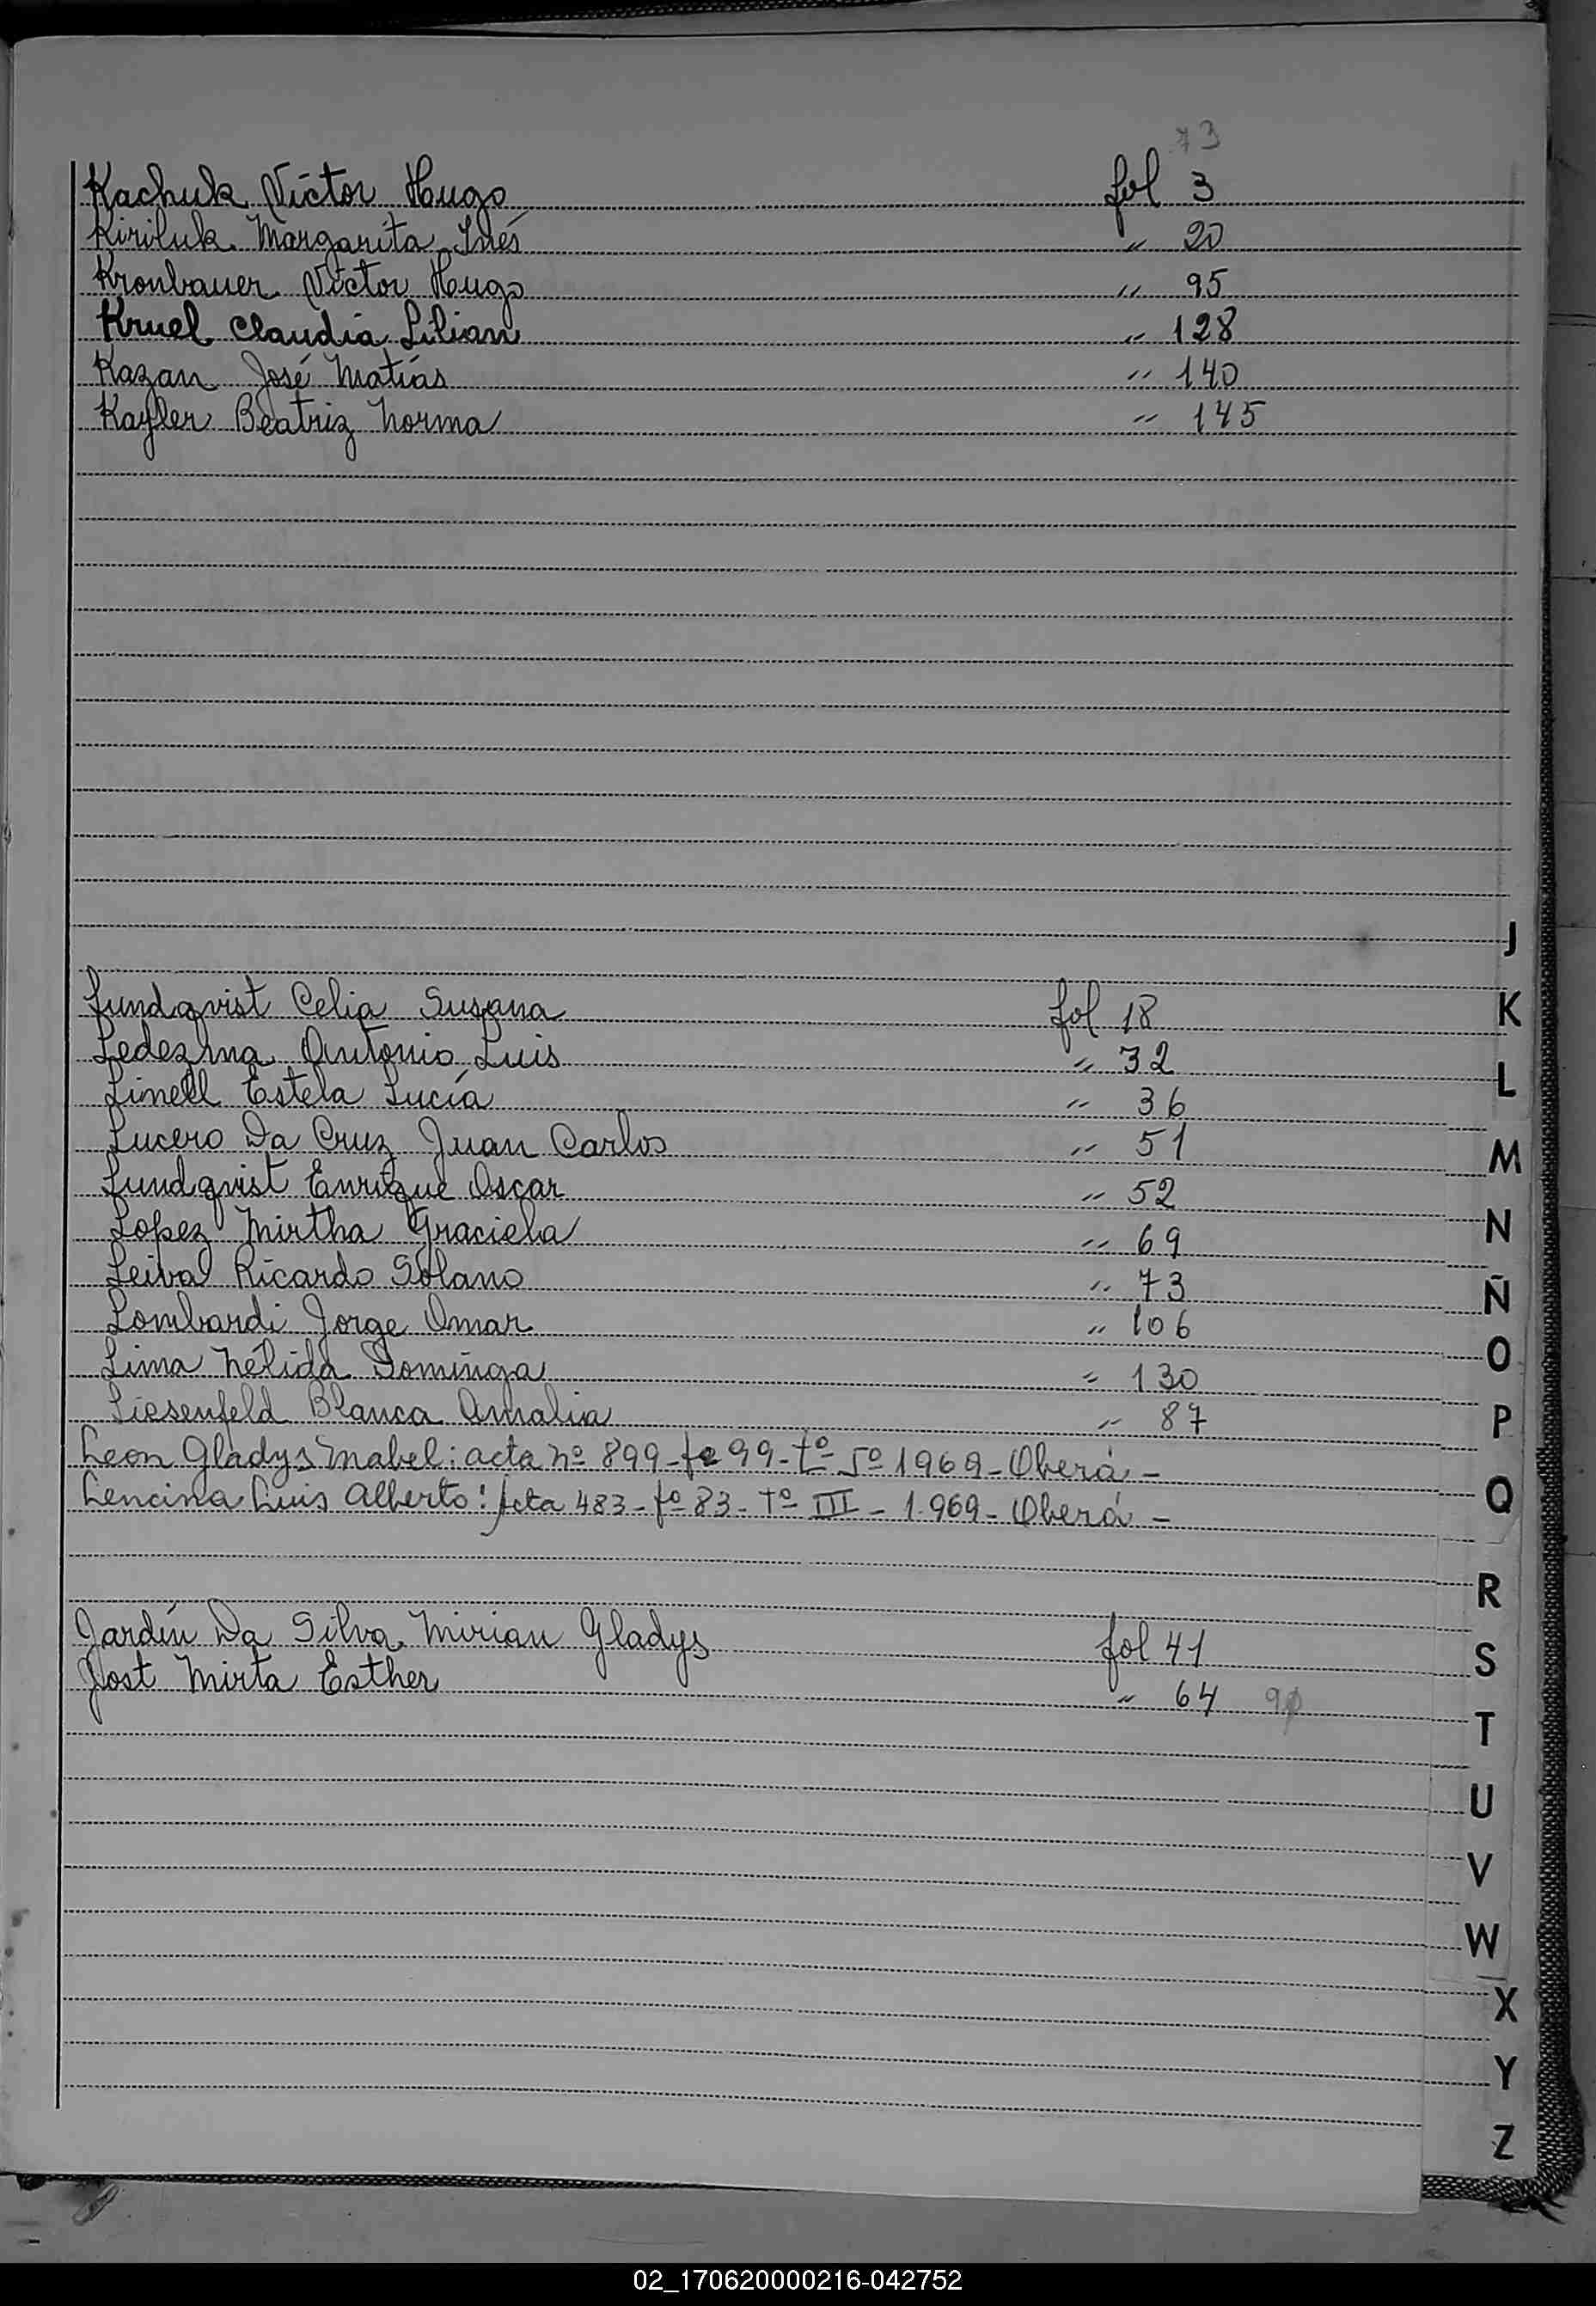 73
Kachuk Victor Hugo fol 3
Kiriluk Margarita Inés " 20
Kronbauer Victor Hugo " 95
Kruel Claudia Lilian " 128
Kazan José Matías " 140
Kayler Beatriz Norma " 145
J
Lundqvist Celia Susana fol 18
K
Ledezma Antonio Luis " 32
L
Linell Estela Lucía " 36
Lucero Da Cruz Juan Carlos " 51
M
Lundqvist Enrique Oscar " 52
N
Lopez Mirtha Graciela " 69
Leiva Ricardo Solano " 73
Ñ
Lombardi Jorge Omar " 106
O
Lima Nélida Dominga " 130
Liesenfeld Blanca Amalia " 87
P
Leon Gladys Mabel: acta nº 899-fº 99-tº 5º 1969-Oberá-
Q
Lencina Luis Alberto: Acta 483-fº 83-Tº III-1.969-Oberá-
R
Jardín Da Silva Mirian Gladys fol 41
S
Jost Mirta Esther " 64
T
U
V
W
X
Y
Z
02_170620000216-042752